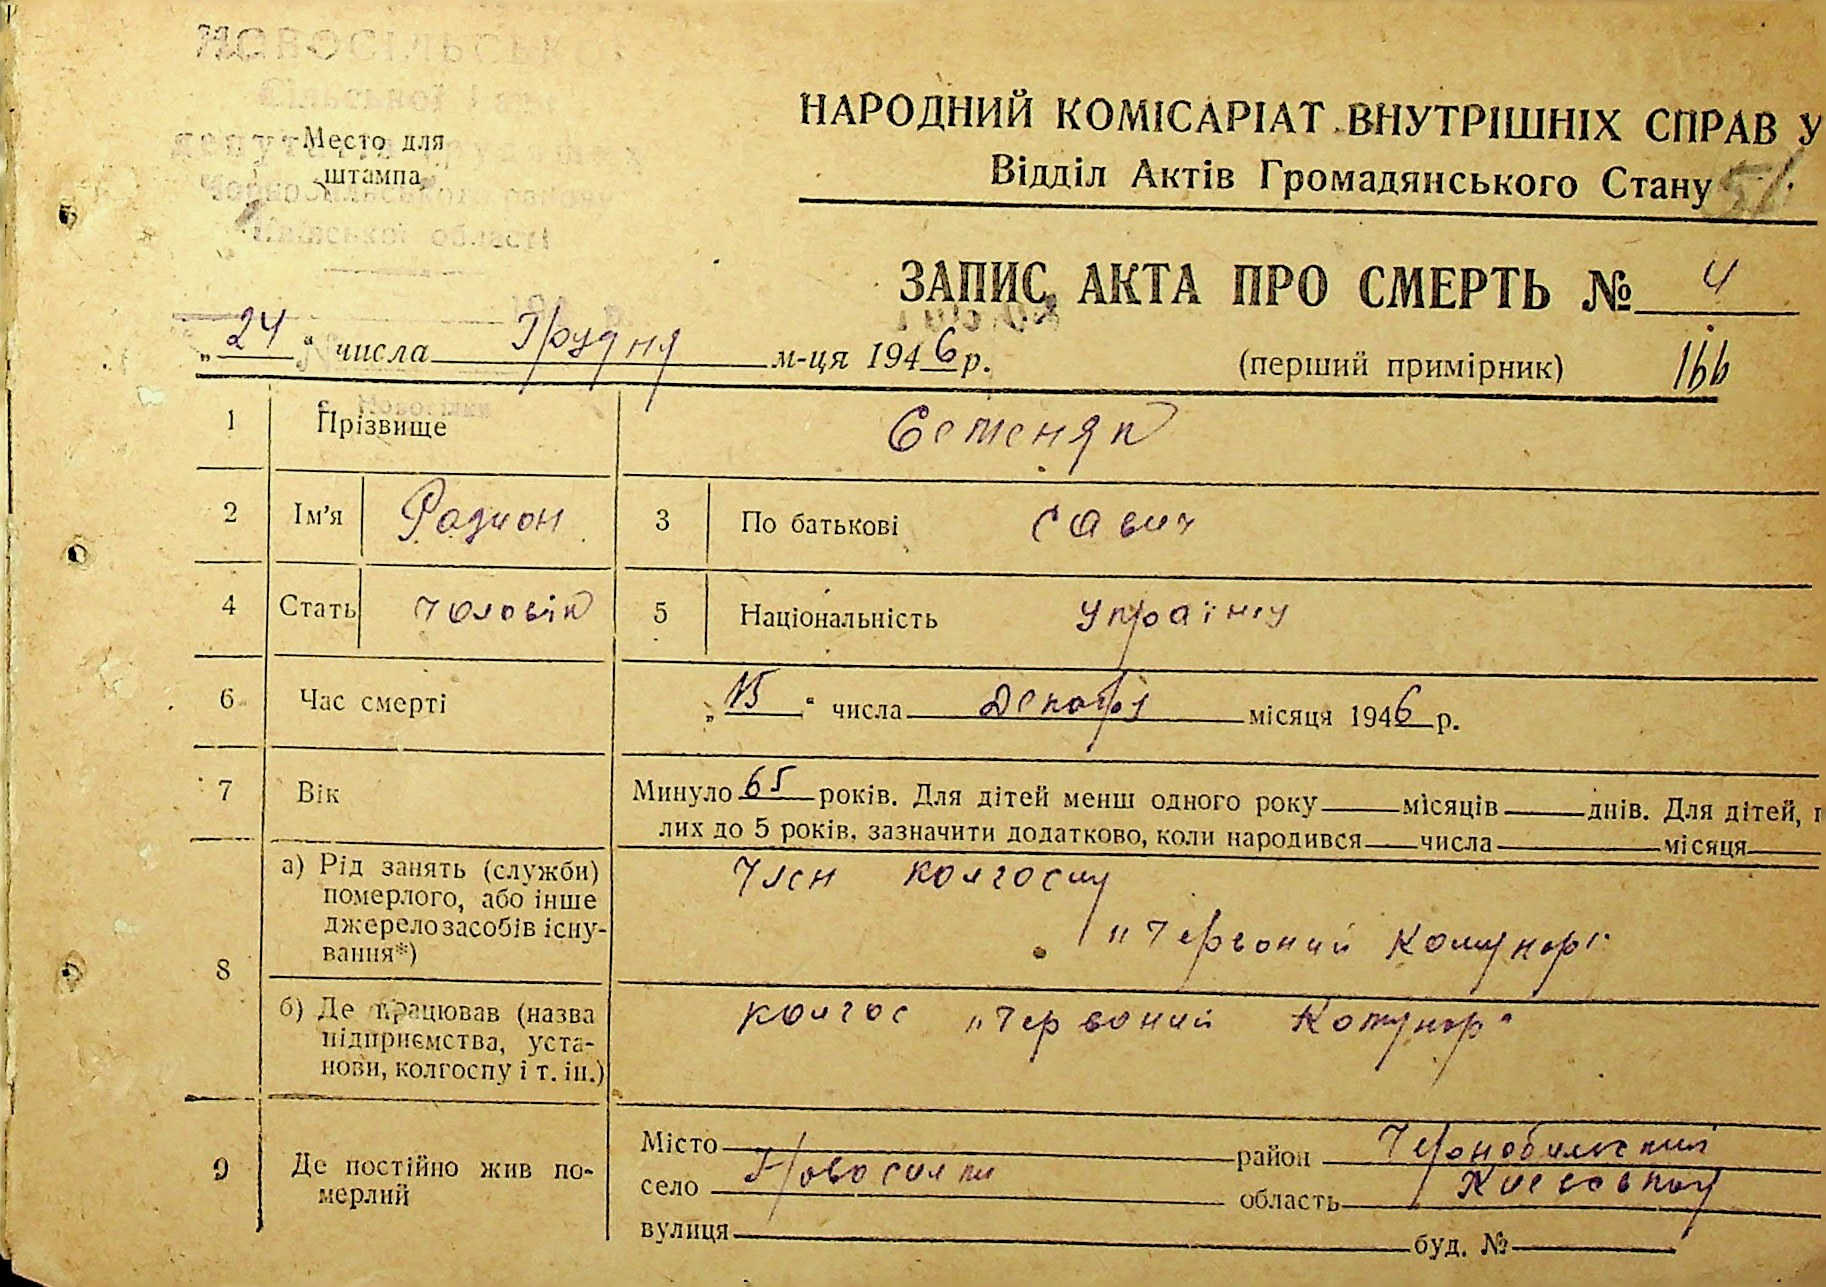 НОВОСІЛЬСЬКОЇ
Сільської
Место для
штампа
області
НАРОДНИЙ КОМІСАРІАТ ВНУТРІШНІХ СПРАВ У
Відділ Актів Громадянського Стану 51
ЗАПИС АКТА ПРО СМЕРТЬ № 4
„24“ числа Грудня м-ця 1946 р.
(перший примірник) 166
1 Прізвище Семеняк
2 Ім'я Радион 3 По батькові Савич
4 Стать чоловік 5 Національність
6 Час смерті „15“ числа Декабря місяця 1946 р.
7 Вік Минуло 65 років. Для дітей менш одного року місяців днів. Для дітей,
лих до 5 років, зазначити додатково, коли народився числа місяця
8 а) Рід занять (служби)
померлого, або інше
джерело засобів існу-
вання*)
Член колгоспу
„Червоний Комунар"
б) Де працював (назва
підприємства, уста-
нови, колгоспу і т. ін.)
колгос „Червоний Комунар"
9 Де постійно жив по-
мерлий
Місто район Чернобильский
село Новосилки область Киевская
вулиця буд. №